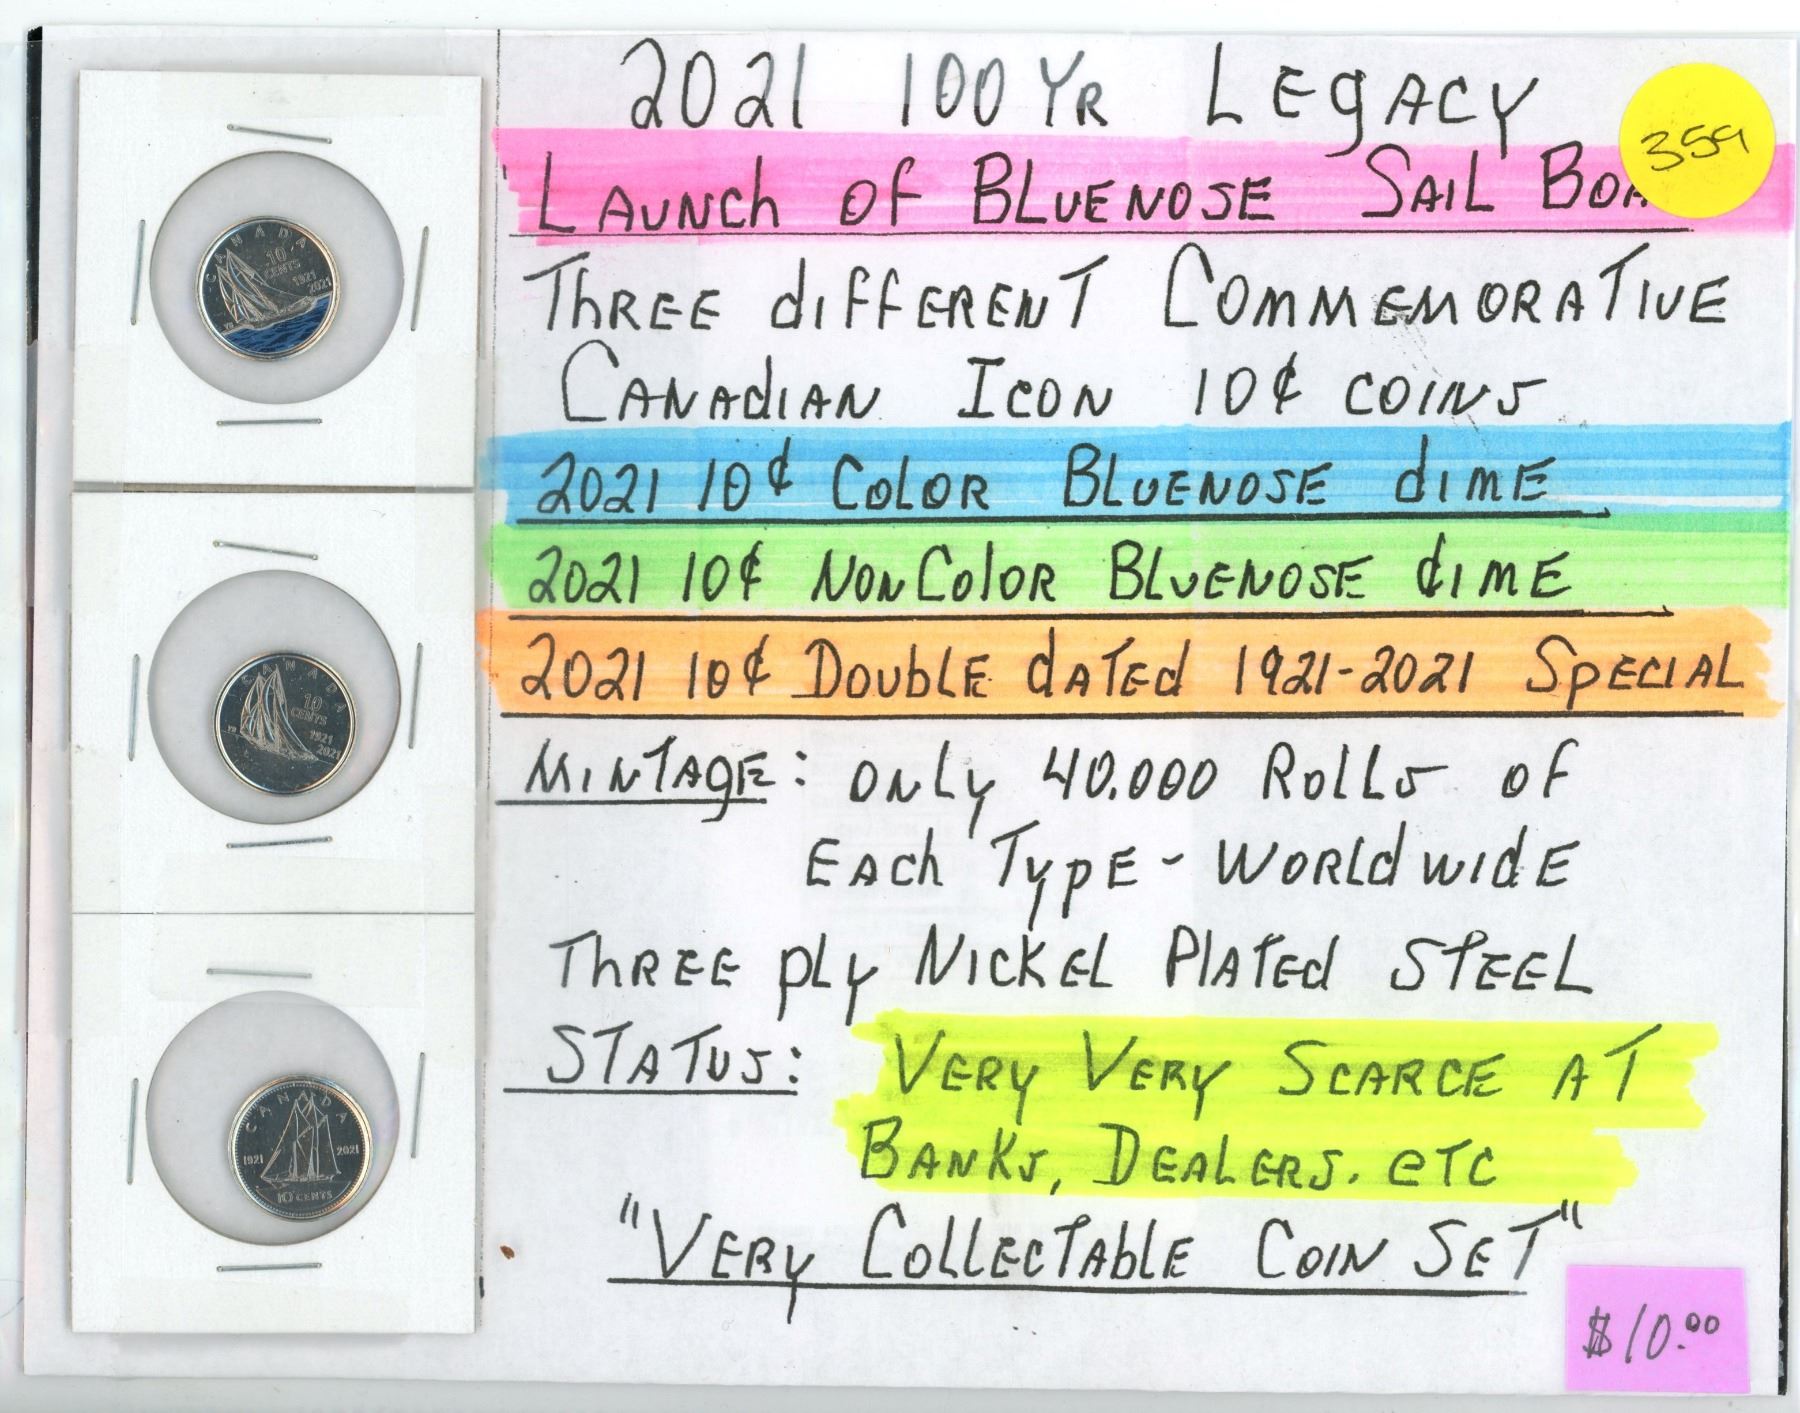 2021 100 Yr Legacy
Launch of Bluenose Sail
359
Three different Commemorative
Canadian Icon 10¢ coins
2021 10¢ Color Bluenose dime
2021 10¢ NonColor Bluenose dime
2021 10¢ Double dated 1921-2021 Special
Mintage: only 40.000 Rolls of
Each Type - Worldwide
Three ply Nickel Plated Steel
Status: Very Very Scarce at
Banks, Dealers. etc
"Very Collectable Coin Set"
$10.00
CANADA
10
CENTS
1921
2021
YB
CANADA
10
CENTS
1921
2021
YB
CANADA
1921 2021
10 CENTS